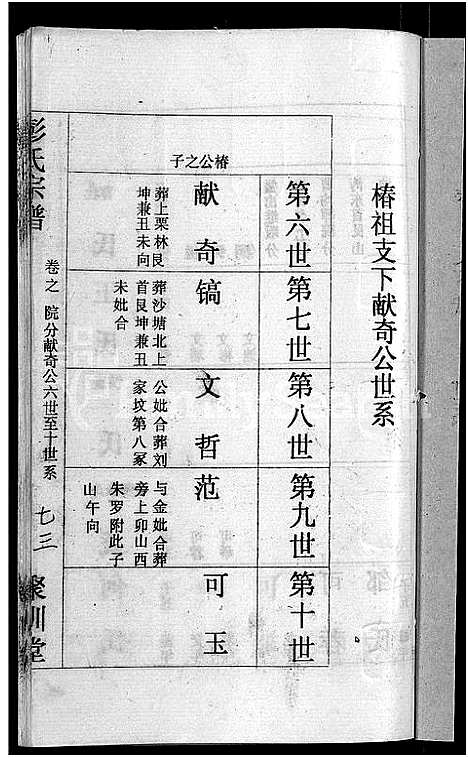 椿祖支下献奇公世系
第六世
第七世
第八世
第九世
第十世
椿公之子
献奇
葬上栗林艮
坤兼丑未向
镐
葬沙塘北上
首艮坤兼丑
未妣合
文哲
公妣合葬刘
家坟第八冢
范
与金妣合葬
旁上卯山西
朱罗附此子
山午向
可玉
彭氏宗谱
卷之 院分献奇公六世至十世系
七三
聚训堂